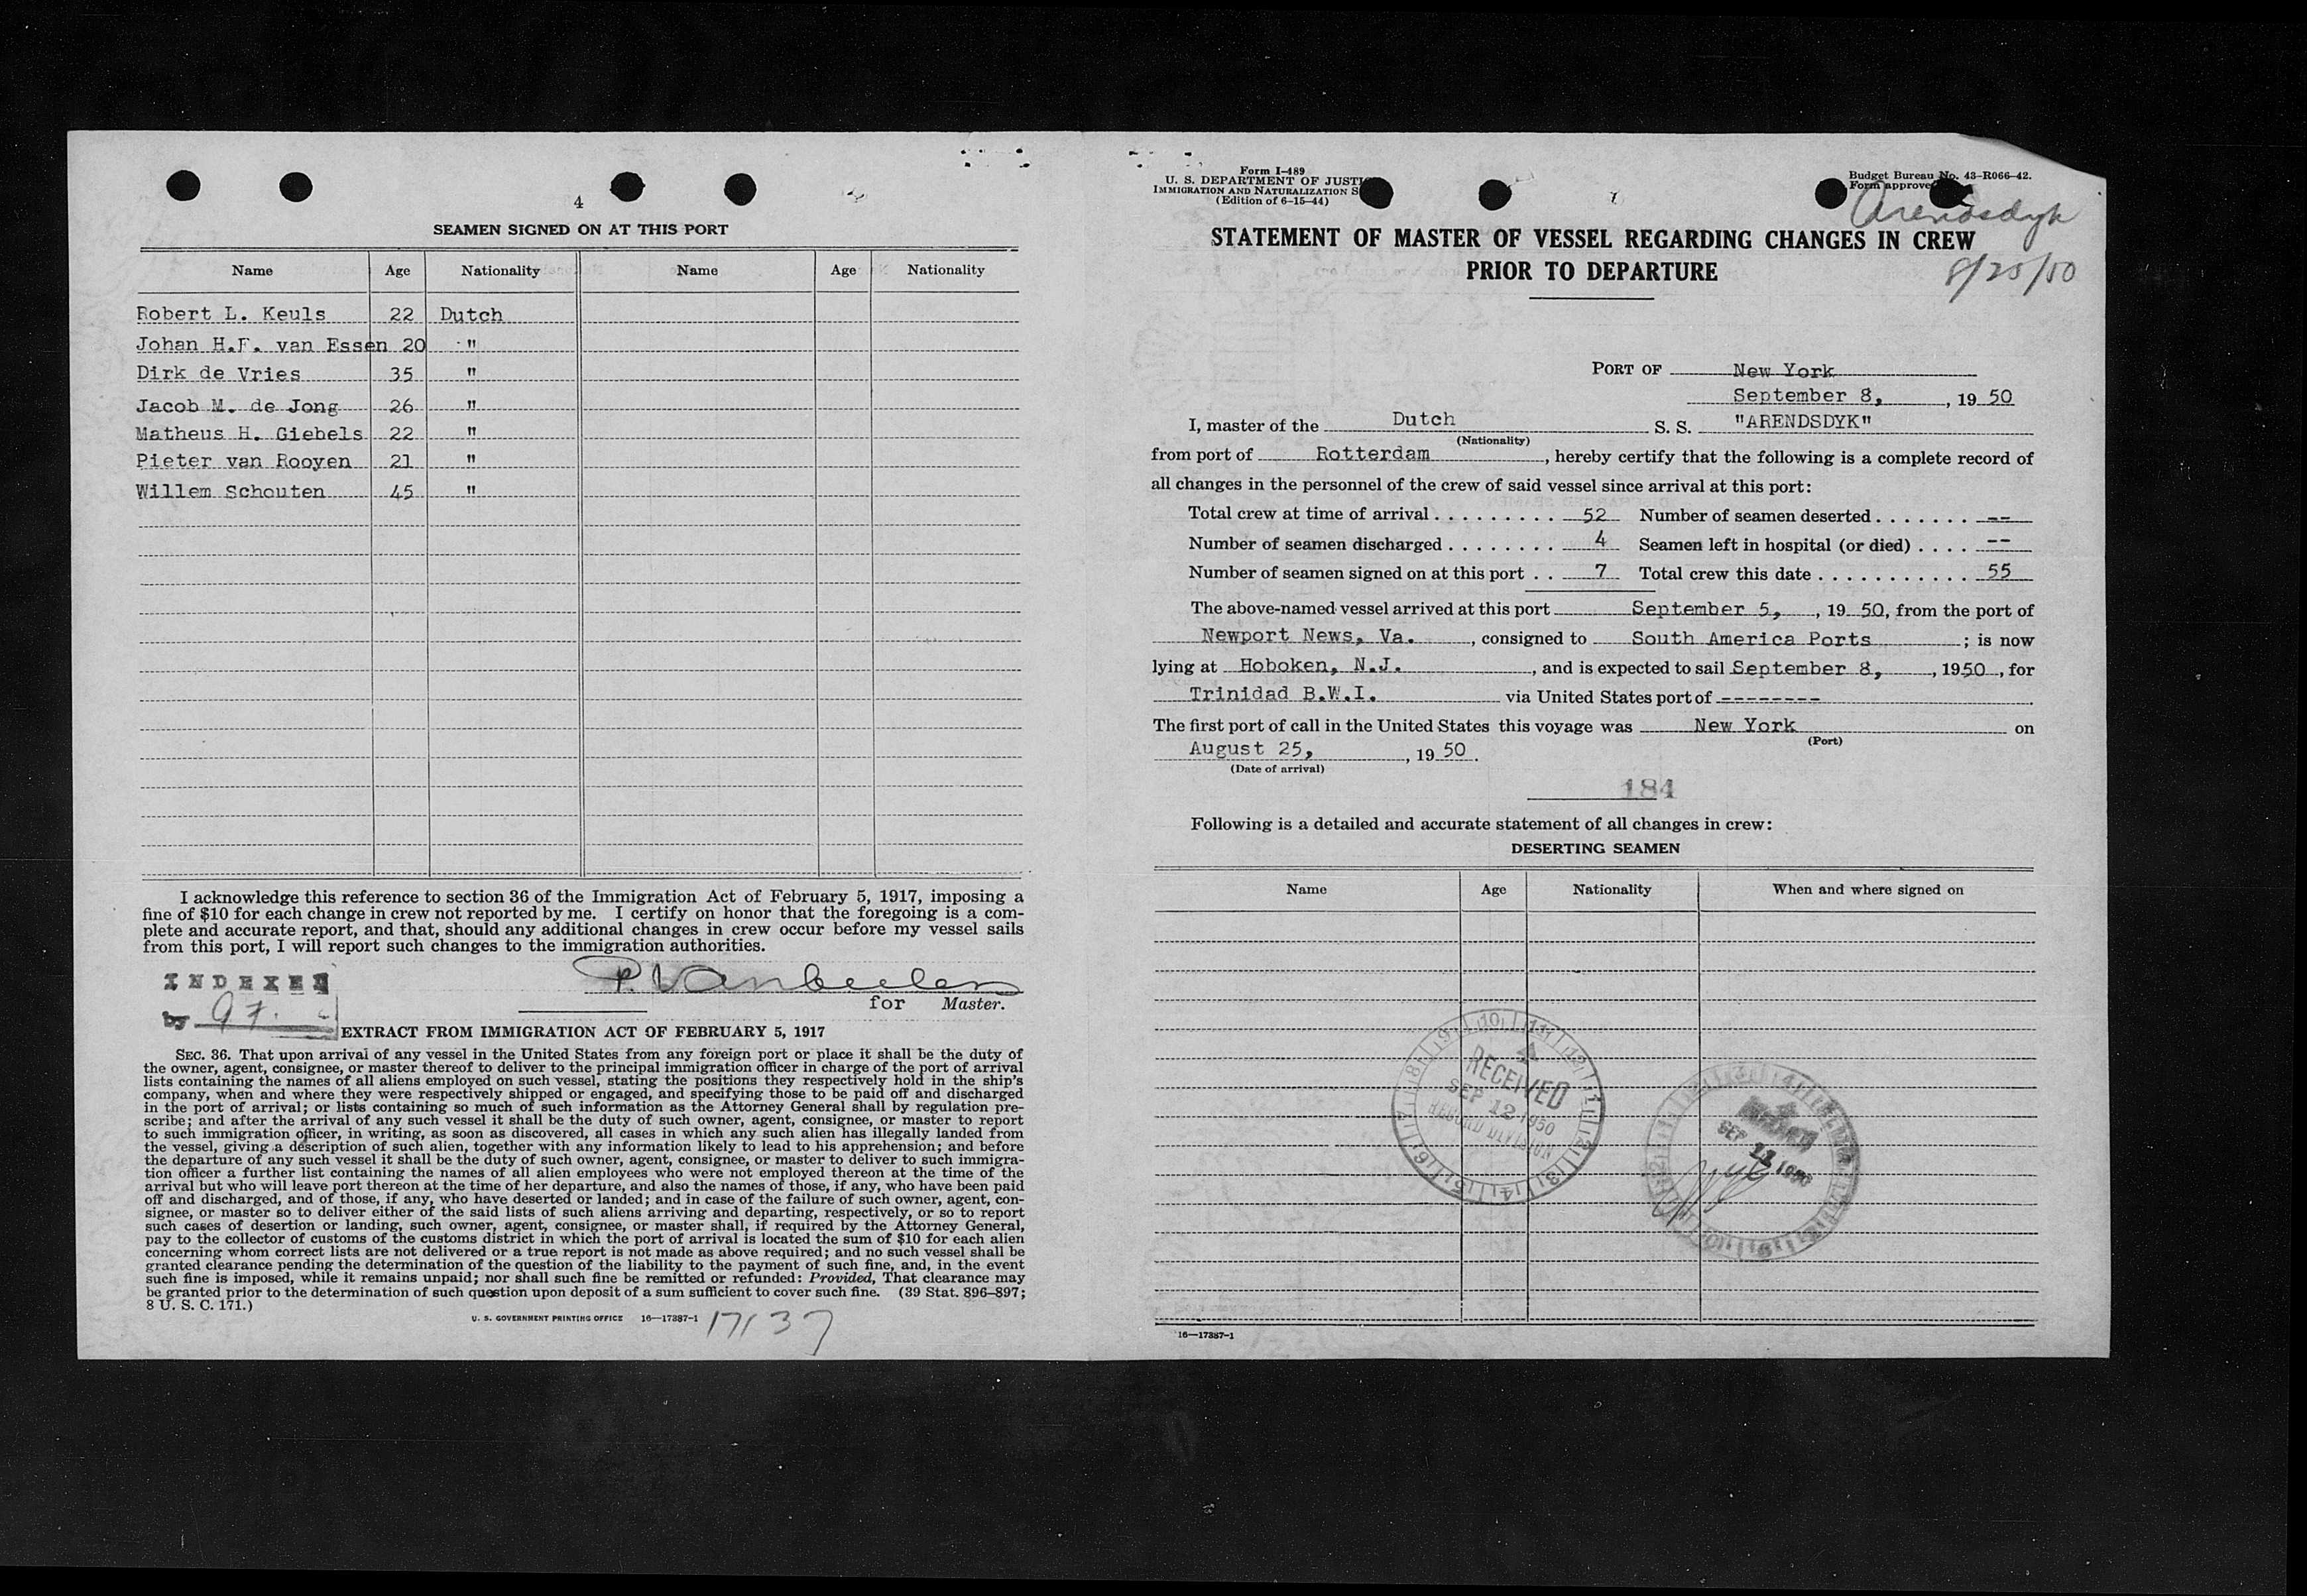 4
SEAMEN SIGNED ON AT THIS PORT
Name Age Nationality Name Age Nationality
Robert L. Keuls 22 Dutch
Johan H.F. van Essen 20 "
Dirk de Vries 35 "
Jacob M. de Jong 26 "
Matheus H. Giebels 22 "
Pieter van Rooyen 21 "
Willem Schouten 45 "
I acknowledge this reference to section 36 of the Immigration Act of February 5, 1917, imposing a
fine of $10 for each change in crew not reported by me. I certify on honor that the foregoing is a com-
plete and accurate report, and that, should any additional changes in crew occur before my vessel sails
from this port, I will report such changes to the immigration authorities.
INDEXED
by 97.
P. Vanbeelen
for Master.
EXTRACT FROM IMMIGRATION ACT OF FEBRUARY 5, 1917
SEC. 36. That upon arrival of any vessel in the United States from any foreign port or place it shall be the duty of
the owner, agent, consignee, or master thereof to deliver to the principal immigration officer in charge of the port of arrival
lists containing the names of all aliens employed on such vessel, stating the positions they respectively hold in the ship's
company, when and where they were respectively shipped or engaged, and specifying those to be paid off and discharged
in the port of arrival; or lists containing so much of such information as the Attorney General shall by regulation pre-
scribe; and after the arrival of any such vessel it shall be the duty of such owner, agent, consignee, or master to report
to such immigration officer, in writing, as soon as discovered, all cases in which any such alien has illegally landed from
the vessel, giving a description of such alien, together with any information likely to lead to his apprehension; and before
the departure of any such vessel it shall be the duty of such owner, agent, consignee, or master to deliver to such immigra-
tion officer a further list containing the names of all alien employees who were not employed thereon at the time of the
arrival but who will leave port thereon at the time of her departure, and also the names of those, if any, who have been paid
off and discharged, and of those, if any, who have deserted or landed; and in case of the failure of such owner, agent, con-
signee, or master so to deliver either of the said lists of such aliens arriving and departing, respectively, or so to report
such cases of desertion or landing, such owner, agent, consignee, or master shall, if required by the Attorney General,
pay to the collector of customs of the customs district in which the port of arrival is located the sum of $10 for each alien
concerning whom correct lists are not delivered or a true report is not made as above required; and no such vessel shall be
granted clearance pending the determination of the question of the liability to the payment of such fine, and, in the event
such fine is imposed, while it remains unpaid; nor shall such fine be remitted or refunded: Provided, That clearance may
be granted prior to the determination of such question upon deposit of a sum sufficient to cover such fine. (39 Stat. 896–897;
8 U. S. C. 171.)
U. S. GOVERNMENT PRINTING OFFICE 16—17387-1
17137
Form I-489
U. S. DEPARTMENT OF JUSTI
IMMIGRATION AND NATURALIZATION S
(Edition of 6-15-44)
Budget Bureau No. 43-R066-42.
Form approve
Arendsdyk
8/25/50
STATEMENT OF MASTER OF VESSEL REGARDING CHANGES IN CREW
PRIOR TO DEPARTURE
PORT OF New York
September 8, , 19 50
I, master of the Dutch S. S. "ARENDSDYK"
(Nationality)
from port of Rotterdam , hereby certify that the following is a complete record of
all changes in the personnel of the crew of said vessel since arrival at this port:
Total crew at time of arrival . . . . . . . . . 52 Number of seamen deserted . . . . . . . --
Number of seamen discharged . . . . . . . . 4 Seamen left in hospital (or died) . . . . --
Number of seamen signed on at this port . . 7 Total crew this date . . . . . . . . . . . 55
The above-named vessel arrived at this port September 5, , 19 50, from the port of
Newport News, Va. , consigned to South America Ports ; is now
lying at Hoboken, N.J. , and is expected to sail September 8, , 1950 , for
Trinidad B.W.I. via United States port of --------
The first port of call in the United States this voyage was New York on
(Port)
August 25, , 19 50.
(Date of arrival)
184
Following is a detailed and accurate statement of all changes in crew:
DESERTING SEAMEN
Name Age Nationality When and where signed on
RECEIVED
SEP 12 1950
RECORD DIVISION
SEP 11 1950
16—17387-1